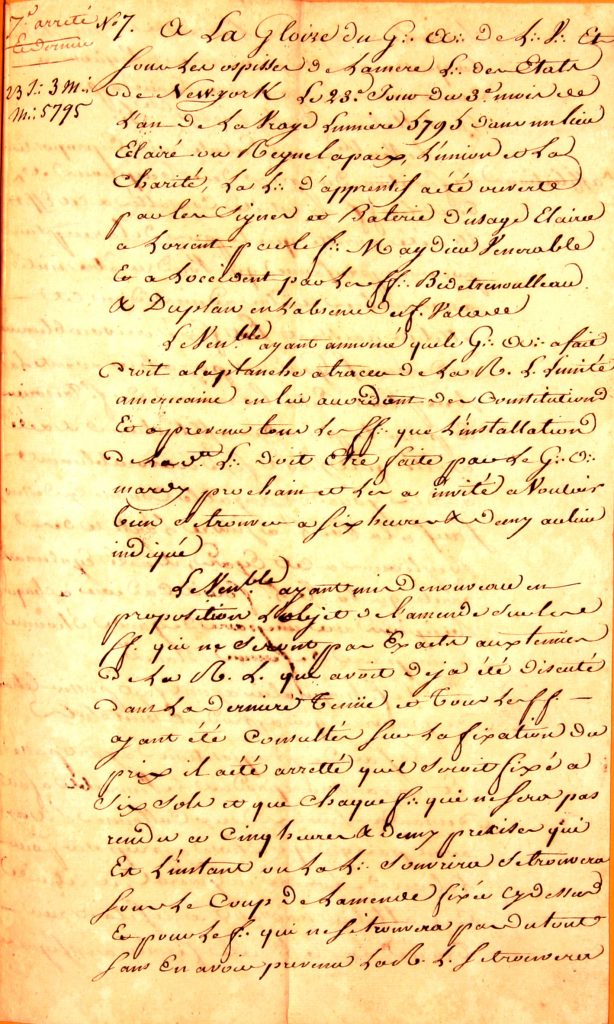 7.e arreté
Le dernier
23 J: 3 m:
M: 5795
No 7. A La Gloire du G: A: de L: V: Et
Sous Les ospisses de La mere L: des Etats
de Newyork Le 23.e Jour du 3.e mois de
L'an de La Vraye Lumiere 5795 dans un lieu
Eclairé ou Regne la paix, L'union et La
Charité, La L: d'apprentif a été ouverte
par les Signes et Baterie d'usage Eclairé
a Lorient par le f: Maydieu Venerable
Et a Loccident par Les ff: Bidetrenoulleau
& Duplan en L'absence du f.
Le Ven.ble ayant annoncé que le G: O: a fait
Droit a la planche a tracer de La R. L. L'unité
americaine en lui accordant des Constitutions
Et a prevenu tous Les ff: que L'installation
de La d.te L: doit Etre faite par Le G: O:
mardy prochain et Les a invité a Vouloir
bien se trouver a six heures & demy au lieu
indiqué
Le Ven.ble ayant mis de nouveau en
proposition L'objet de L'amende sur les
ff: qui ne seront pas Exacts aux tenues
de La R. L. qui avoit deja été discuté
dans La derniere Tenüe et Tous Les ff: —
ayant été Consultés sur La fixation du
prix il a été arretté quil seroit fixé a
six sols et que chaque f: qui ne sera pas
rendu a Cinq heures & demy precises qui
Est L'instant ou La L: s'ouvrira se trouvera
sous Le Coup de L'amende fixée cy dessus
Et pour Le f: qui ne se trouvera pas du tout
sans En avoir prevenu La R. L. se trouvera